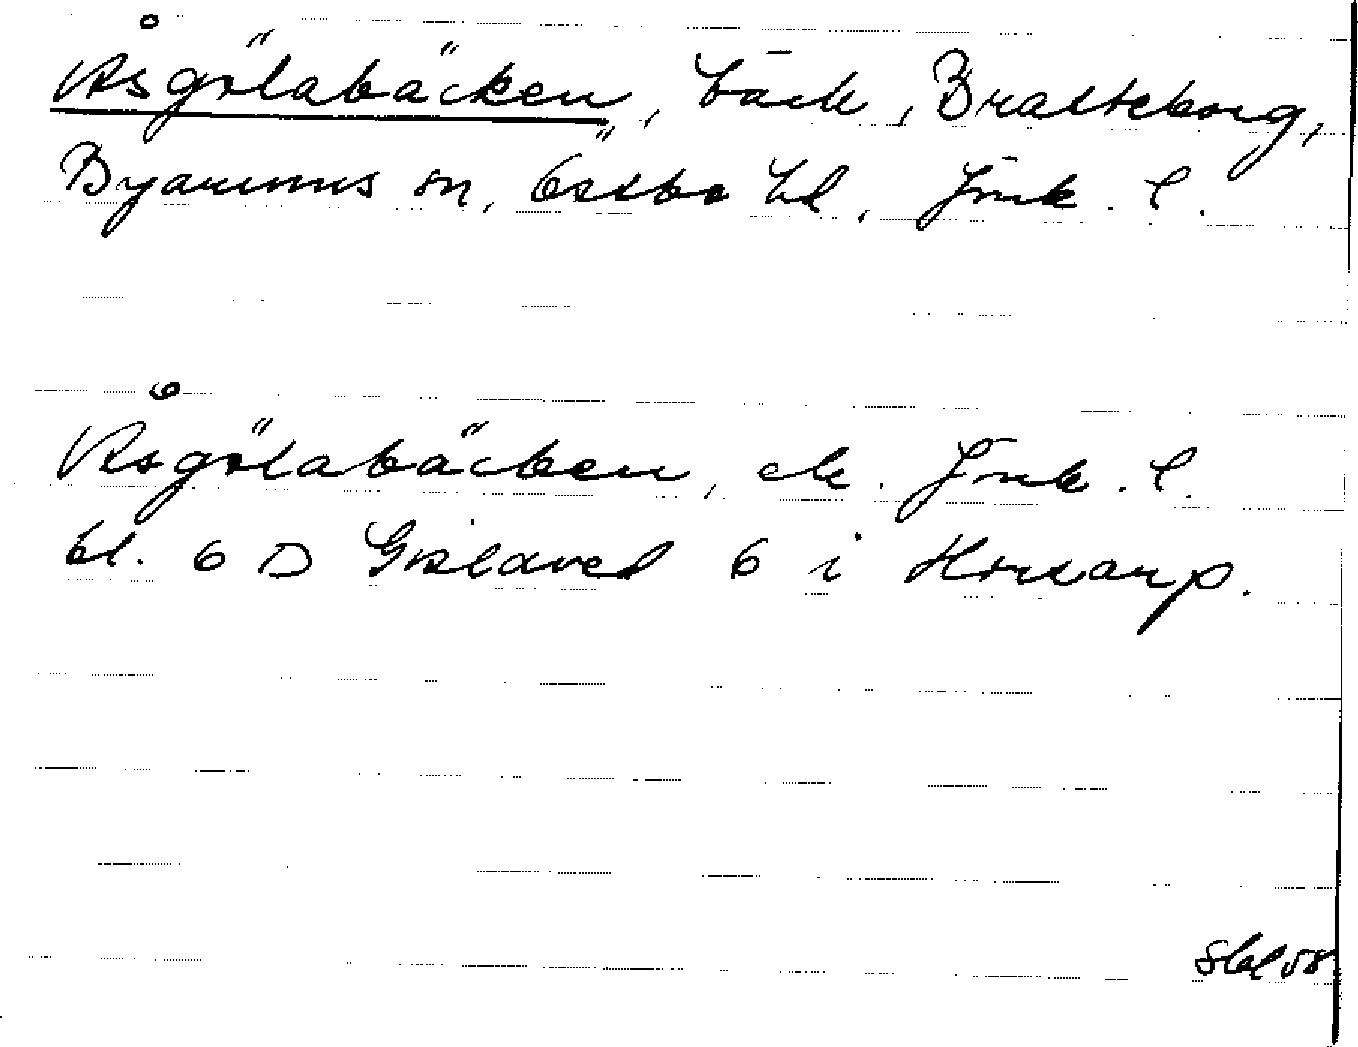 Åsgölabäcken, bäck, Bratteborg,
Byarums sn, Östbo hd, Jönk. l.
Åsgölabäcken, ek. Jönk. l.
bl. 6 D Gislaved 6 i Horsarp.